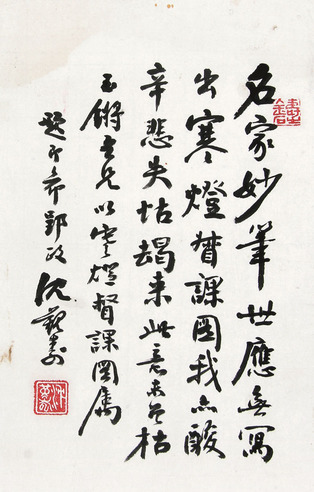 名家妙筆世應無寫
出寒燈督課圖我亦酸
辛悲失怙朅来此意未全枯
玉鏘吾兄以寒燈督課圖屬
題即希郢政 沈覲壽